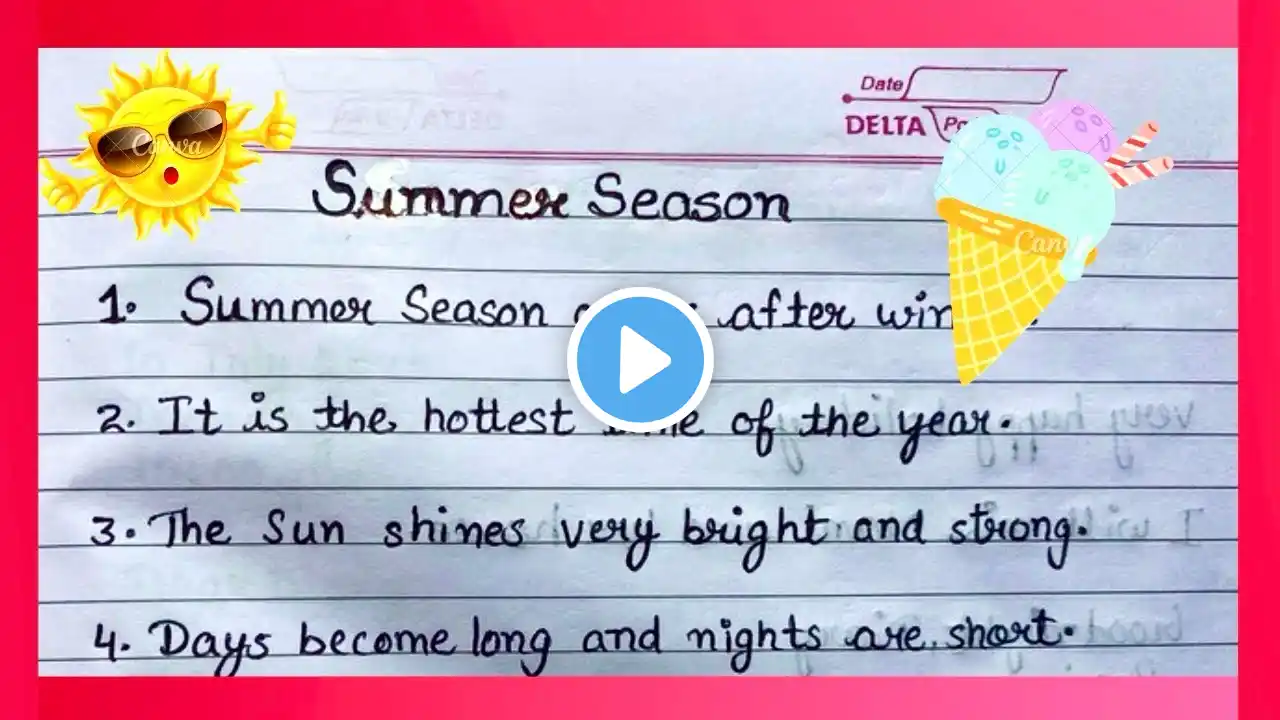 Canva
Date
DELTA
Summer Season
Canva
1. Summer Season after
2. It is the hottest of the year.
3. The Sun shines very bright and strong.
4. Days become long and nights are short.